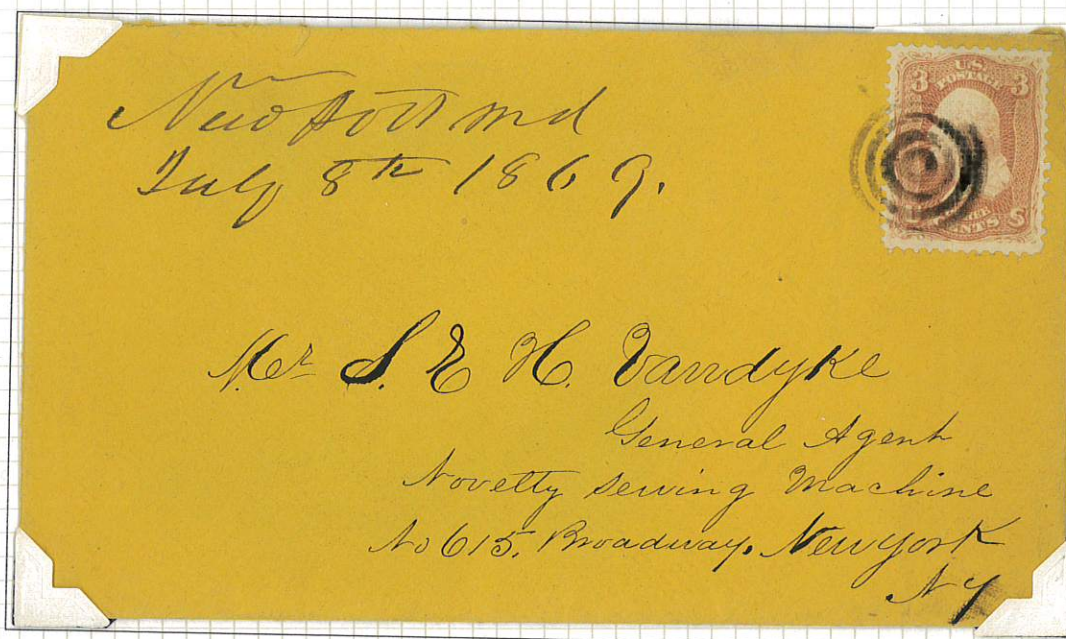 Newport Md
July 8th 1869.
3 U.S. POSTAGE 3
CENTS
Mr S. E. H. Vandyke
General Agent
Novelty Sewing Machine
No 615. Broadway, New york
NY